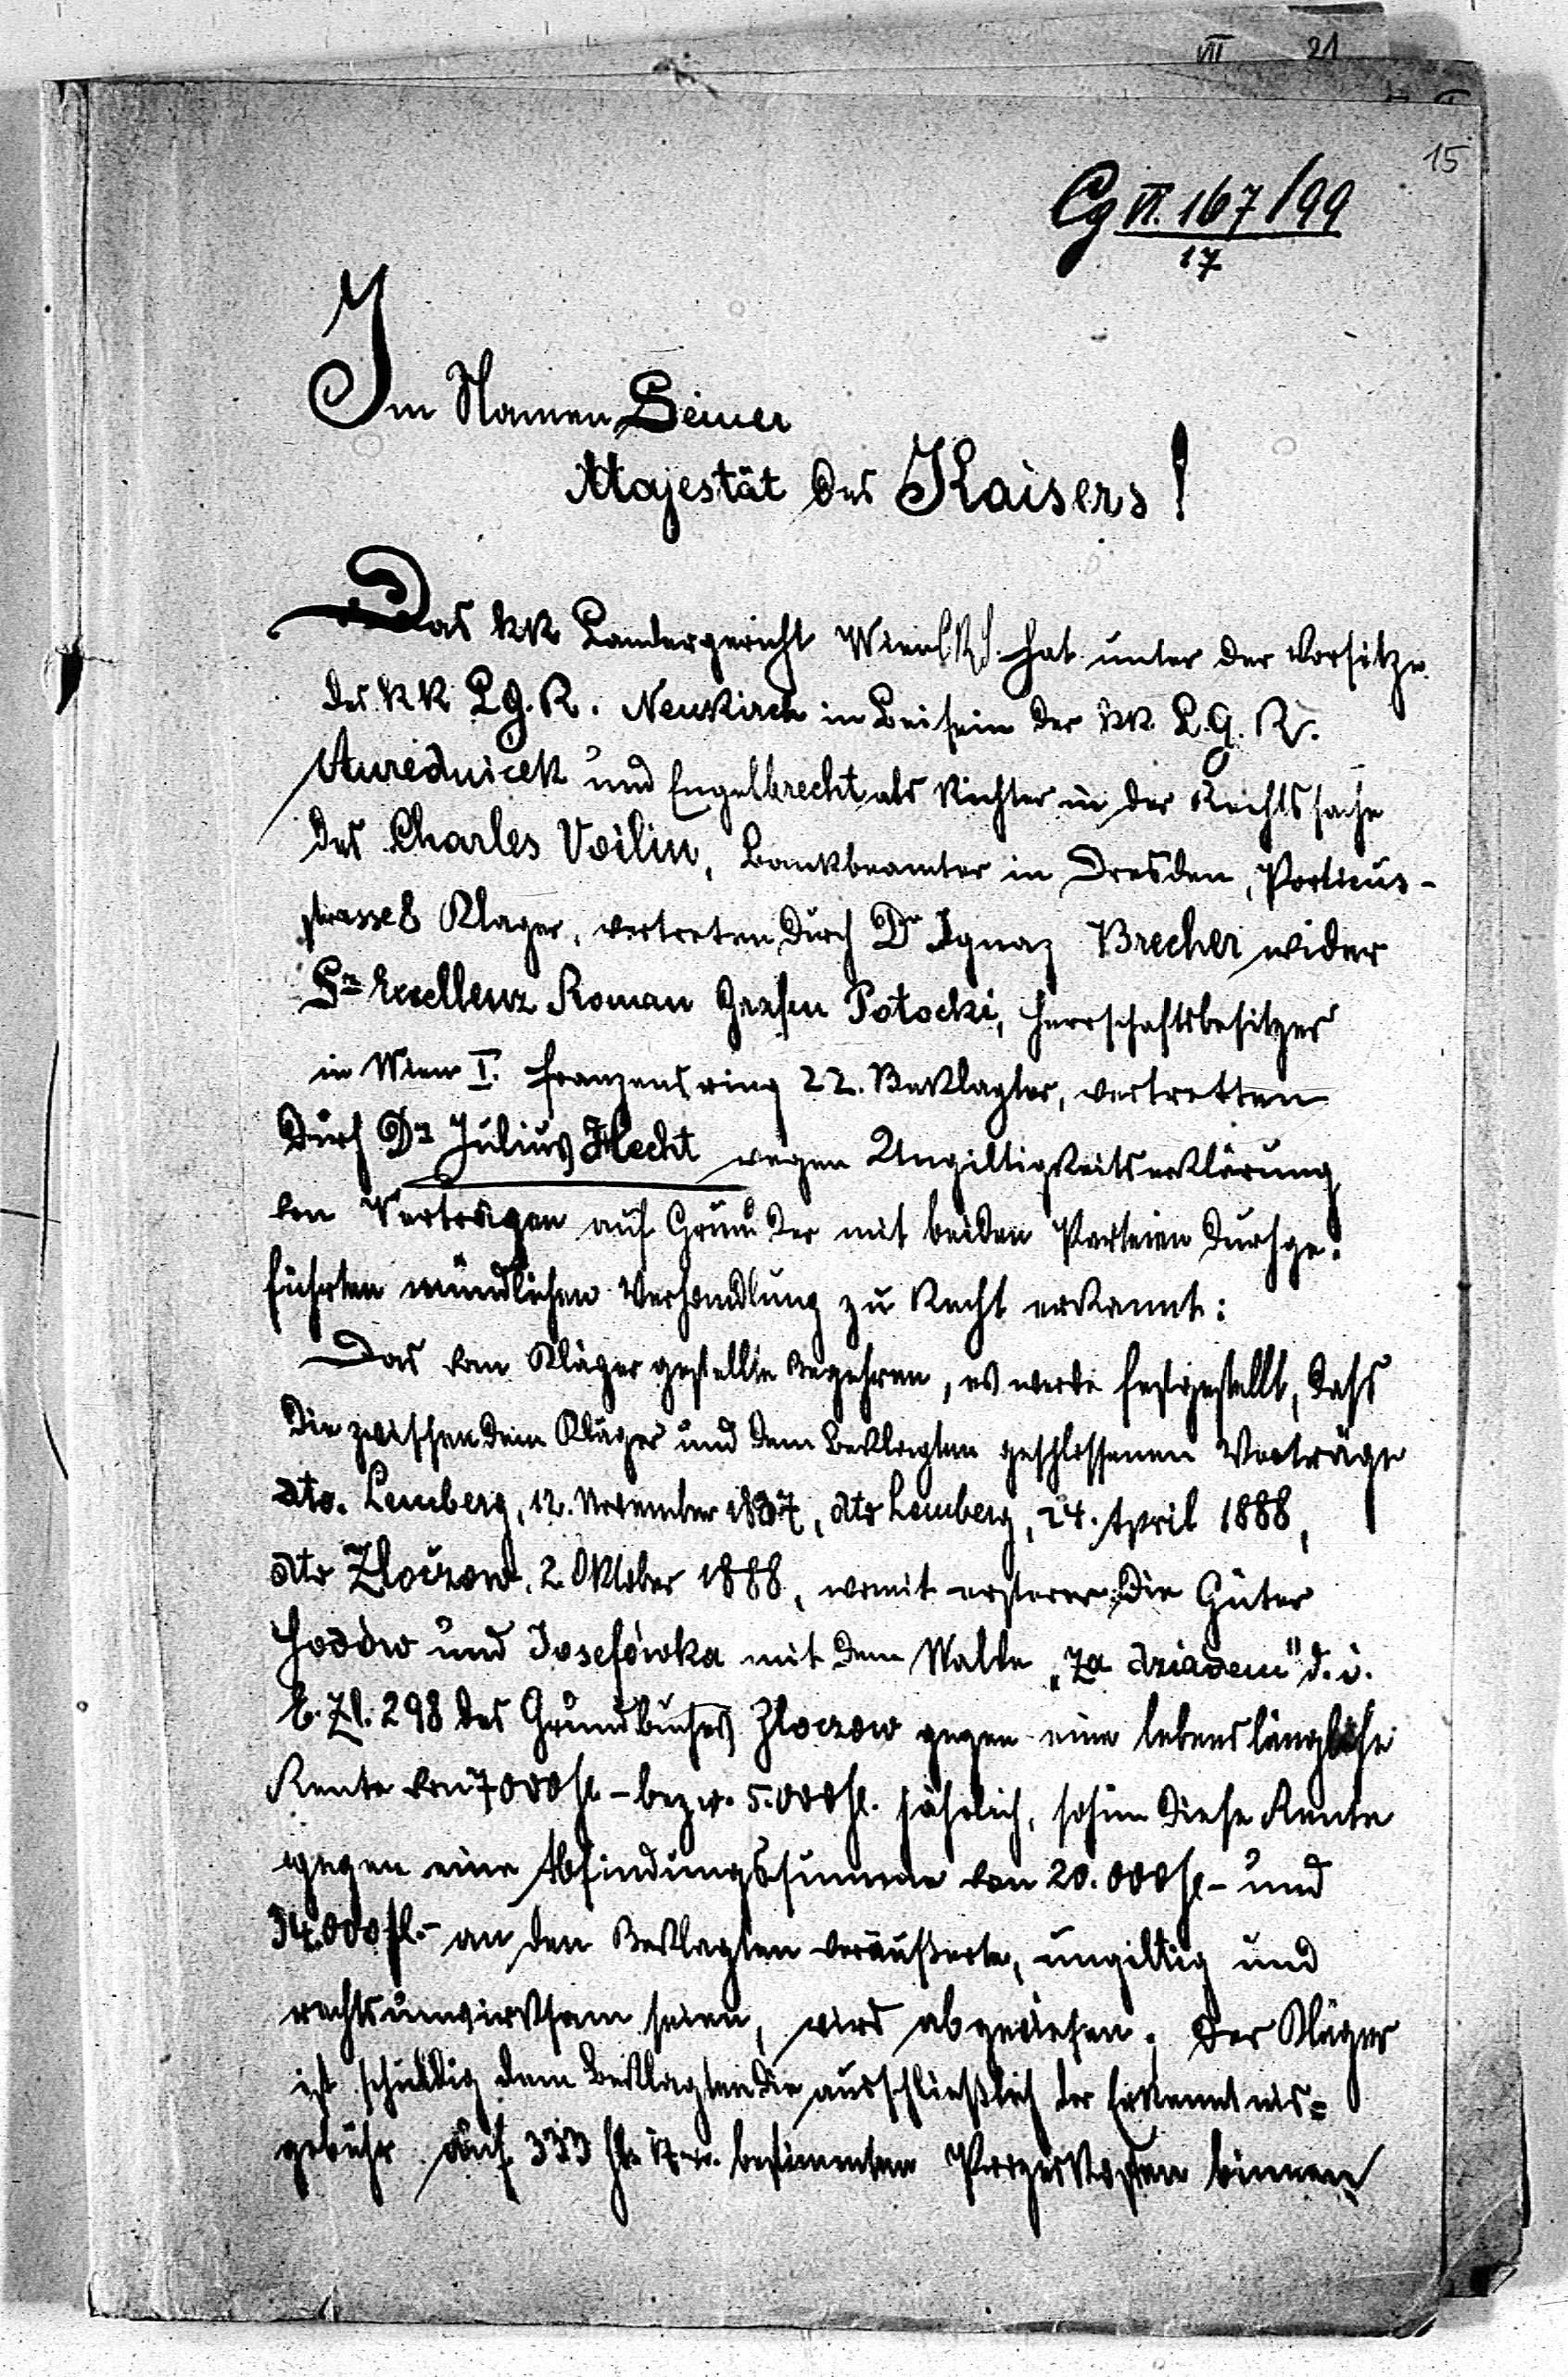 VII 21
15
Cg VI. 167/99
17
Im Namen Seiner
Majestät des Kaisers!
Das kk Landesgericht Wien hat unter der Vorsitze
des kk LG.R. Neukirch in Beisein der kk L.G.R.
Aurednicek und Engelbrecht als Richter in der Rechtssache
des Charles Voilin, Bankbeamter in Dresden, Porticus-
strasse 8 Kläger, vertreten durch Dr Ignaz Brecher wider
Sr Excellenz Roman Grafen Potocki, Herrschaftsbesitzer
in Wien I. Franzensring 22. Beklagter, vertretten
durch Dr Julius Hecht wegen Ungiltigkeitserklärung
von Verträgen auf Grund der mit beiden Parteien durchge-
führten mündlichen Verhandlung zu Recht erkannt:
Das vom Kläger gestellte Begehren, es werde festgestellt, dass
die zwischen dem Kläger und dem Beklagten geschlossenen Verträge
dto. Lemberg, 12. November 1887, dto Lemberg, 24. April 1888,
dto Zloczow, 2. Oktober 1888, womit ersterer die Güter
Hodów und Josefówka mit dem Walde „za dziadem" d. i.
E. Zl. 298 des Grundbuches Zloczow gegen eine lebenslängliche
Rente von 7000 fl.- bezw. 5.000 fl. jährlich, sohin diese Rente
gegen eine Abfindungssumme von 20.000 fl- und
34.000 fl.- an den Beklagten veräußerte, ungiltig und
rechtsunwirksam seien, wird abgewiesen. Der Kläger
ist schuldig dem Beklagten die ausschließlich der Erkenntnis=
gebühr auf 333 fl. bestimmten Prozeskosten binnen